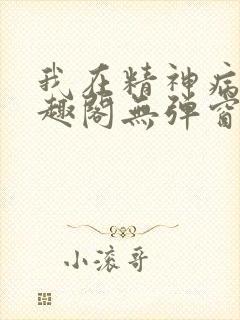 我在精神病
趣阁無弹窗
小滚哥